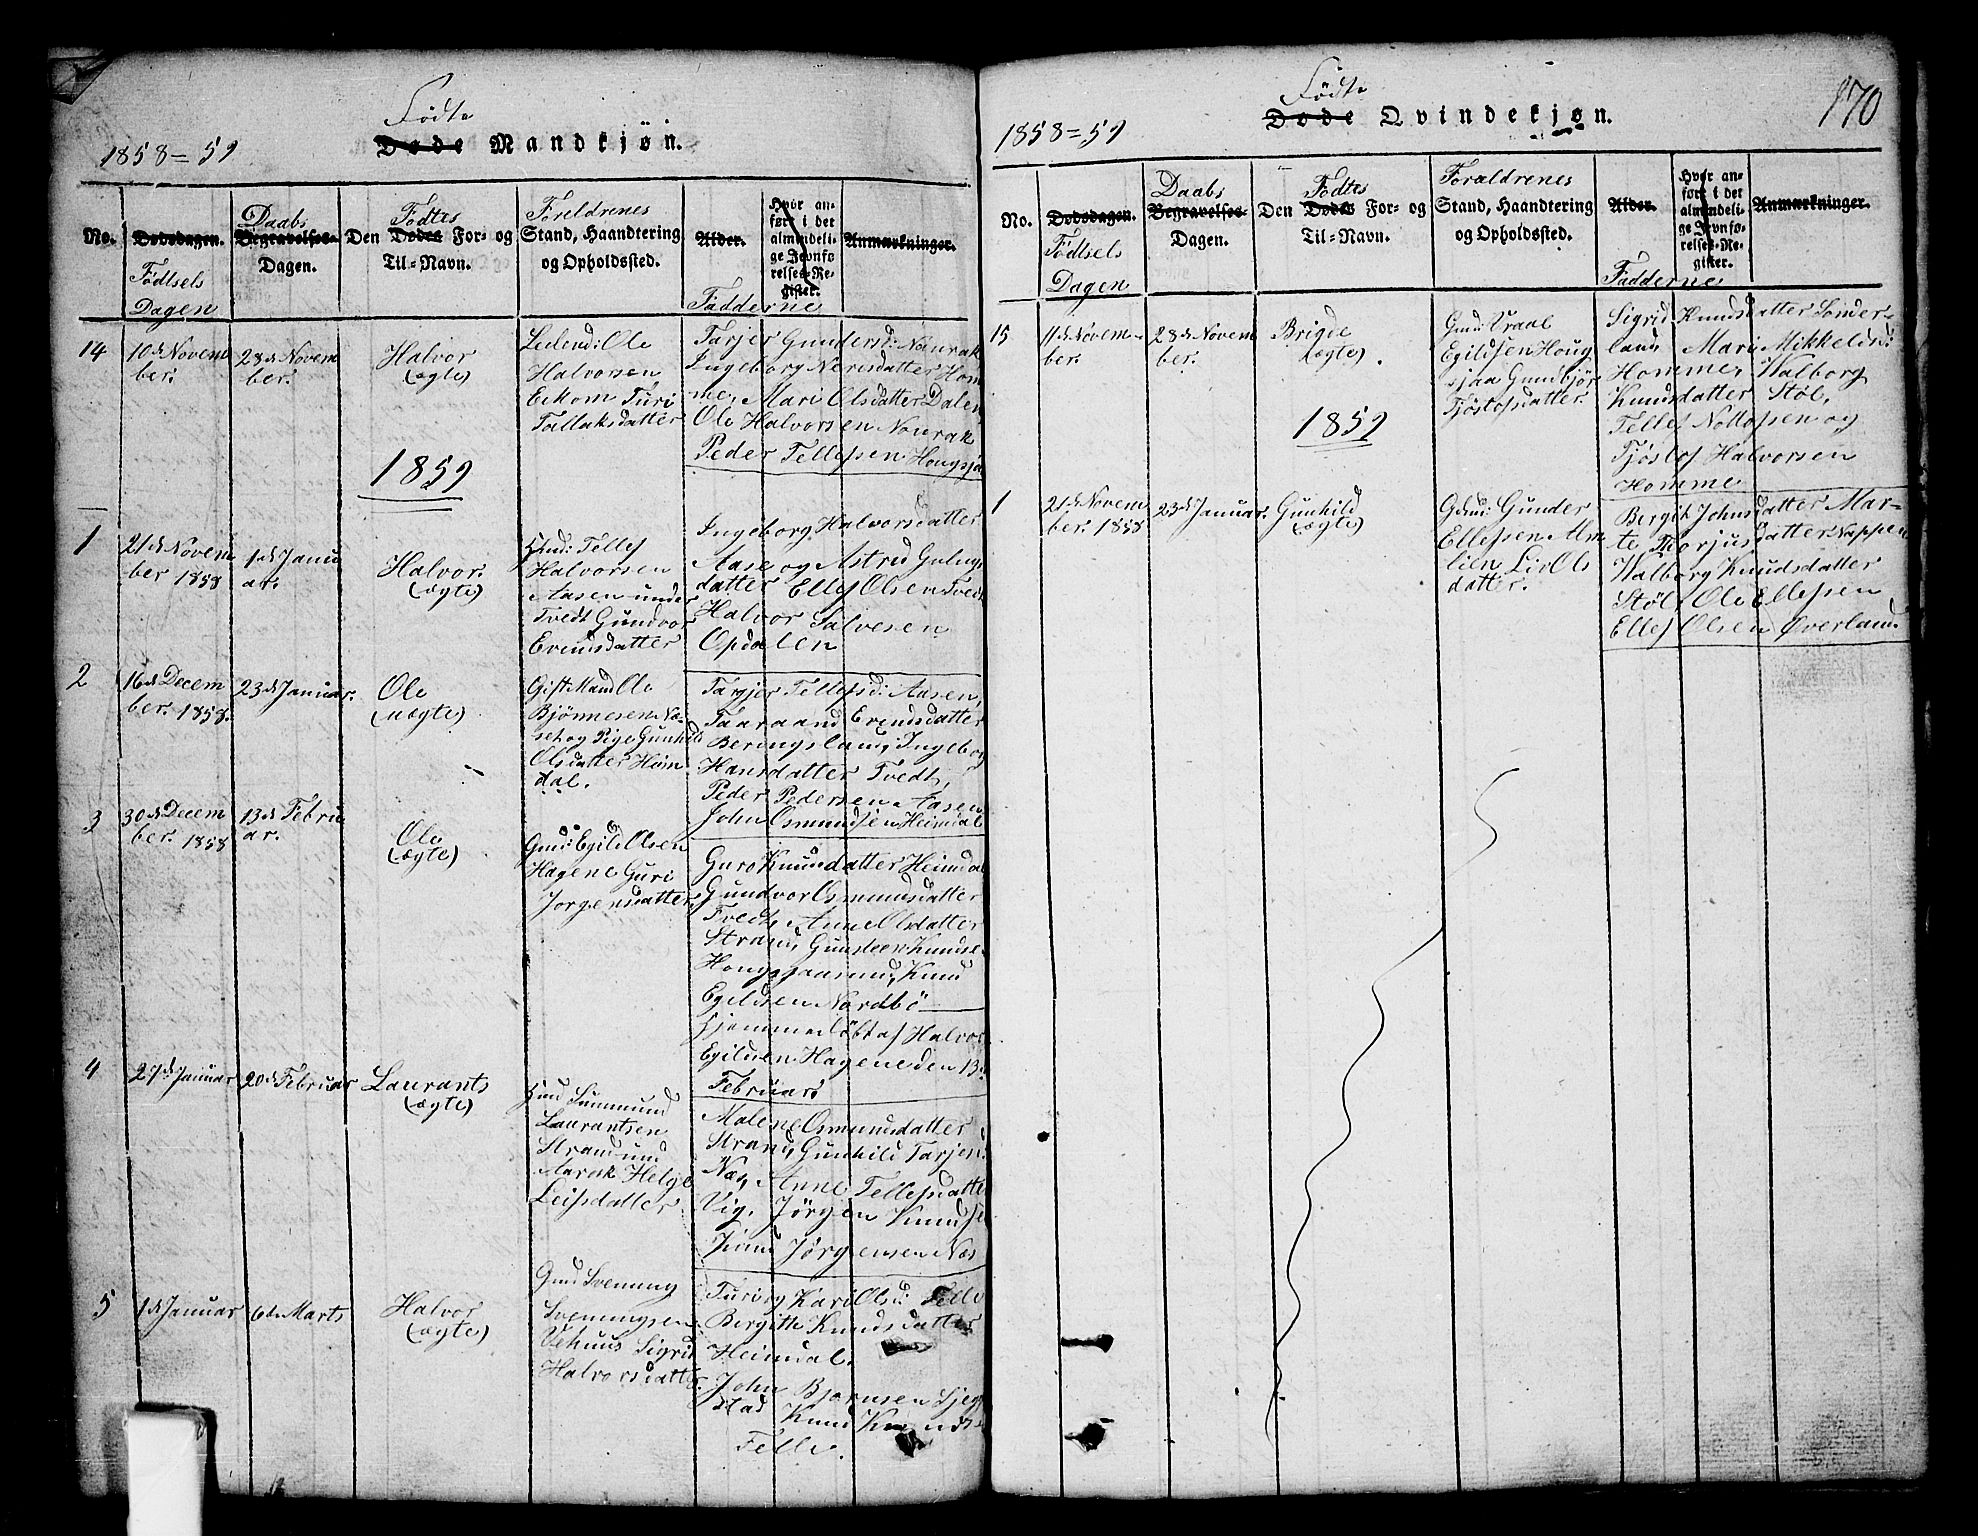 Födte
1858=59
Døde Mandkjøn.
No.
Dødsdagen.
Födtsels
Dagen
Daabs
Begravelses-
Dagen.
Födtes
Den Dødes For- og
Til=Navn.
Foreldrenes
Stand, Haandtering
og Opholdssted.
Alder.
Fadderne
Hvor an-
ført i det
almindeli-
ge Jevnfø-
relses-Re-
gister.
Anmærkninger.
14
10de Novem
ber.
28de Novem
ber.
Halvor
(ægte)
Leilend: Ole
Halvorsen
Eikom Turi
Tallaksdatter
Tarjer Gundersd: Nourak
Ingeborg Nerisdatter Hom
me, Mari Olsdatter Dalen
Ole Halvorsen Nourak
Peder Tellefsen Hougsjå
1859
1
21de Novem
ber 1858
1de Janu
ar.
Halvor.
(ægte)
Huusd: Tellef
Halvorsen
Aasen under
Tvedt Gundvor
Evendsdatter
Ingeborg Halvorsdatter
Aase og Astrid Gulugs
datter Ellef Olsen Tvedt
Halvor Salvesen
Opdalen
2
16de Decem
ber. 1858.
23de Januar.
Ole
(uægte)
Gift Mand Ole
Bjönnesen Næ-
set og Pige Gunhild
Olsdatter Heim
dal.
Targjer Tellefsd: Aasen,
Taaraand Evendsdatter
Beringsland, Ingeborg
Hansdatter Tvedt,
Peder Pedersen Aasen
John Osmundsen Heimdal
3
30de Decem
ber. 1858
13de Febru
ar.
Ole
(ægte)
Gmd: Egild Olsen
Hagene Guri
Jorgensdatter
Guro Knudsdatter Heimdal
Gundvor Osmundsdatter
Tvedt, Anne Olsdatter
Strand, Gunsteen Knudse
Hougsjaasund, Knud
Egildsen Nordbö
Hjemmedöbt af Halvor
Egildsen Hagene den 13de
Februar
4
27de Januar
20de Februar
Laurants
(ægte)
Huusd Summund
Laurantsen
Strand und
Aarak Helge
Leifsdatter
Malene Osmundsdatter
Strand, Gunhild Tarjersd:
Næs, Anne Tellefsdatter
Vig, Jörgen Knudse
Knud Jörgensen Næs
5
1de Januar
6te Marts
Halvor
(ægte)
Gmd Svenung
Svenungsen
Vehuus Sigrid
Halvorsdatter
Turi og Kari Olsd: Felle
Bergith Knudsdatter
Heimdal.
John Bjornsen Sjeg
stad
Knud Knuds
Felle.
170
Födte
1858=59
Døde Qvindekjøn.
No.
Dødsdagen.
Födtsels
Dagen
Daabs
Begravelses-
Dagen.
Födtes
Den Dødes For- og
Til=Navn.
Foraldrenes
Stand, Haandtering
og Opholdssted.
Alder.
Fadderne
Hvor an-
ført i det
almindeli-
ge Jevnfø-
relses-Re-
gister.
Anmærkninger.
15
11de Novem-
ber.
28de Novem
ber.
Brigde
(ægte)
Gmd: Vraal
Egildsen Houg
sjaa Gundbjör
Tjöstofsdatter
Sigrid Knudsdatter Sönder-
land, Mari Mikkelsd:
Homme, Walborg
Knudsdatter Stöl,
Tellef Nottofsen og
Tjöstof Halvorsen
Homme
1859
1
21de Novem
ber. 1858
23de Januar.
Gunhild
(ægte)
Gdmd: Gunder
Ellefsen Alm
lien Liv Ols
datter.
Bergit Johnsdatter Mar-
te Torjusdatter Nappen
Walborg Knudsdatter
Stöl, Ole Ellefsen
Ellef Olsen Øverland